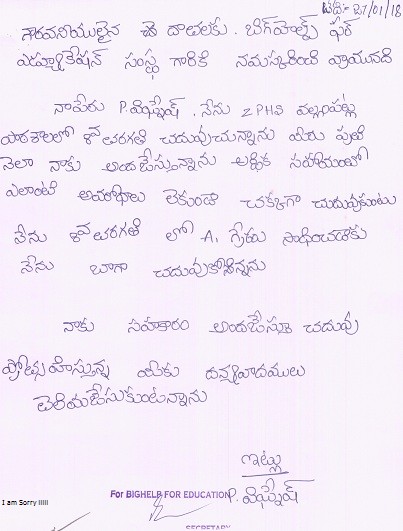 తేది:- 27/01/18
గౌరవనీయులైన దాతలకు. బిగ్‌హెల్ప్ ఫర్
ఎడ్యూకేషన్ సంస్థ గారికి నమస్కరించి వ్రాయునది
నాపేరు P.విఘ్నేష్. నేను ZPHS వల్లంపల్లి
పాఠశాలలో 8వ తరగతి చదువుచున్నాను మీరు ప్రతి
నెలా నాకు అందజేస్తున్నాను ఆర్థిక సహాయంతో
ఎలాంటి అవరోధాలు లేకుండా చక్కగా చదువుకుంటు
నేను 8వ తరగతి లో A1 గ్రేడు సాధించడాకు
నేను బాగా చదువుకొ
నాకు సహకారం అందజేస్తూ చదువు
ప్రోత్సహిస్తున్న మీకు దన్యవాదములు
తెలియజేసుకుంటన్నాను
ఇట్లు
P. విఘ్నేష్
For BIGHELP FOR EDUCATION
I am Sorry lllll
SECRETARY